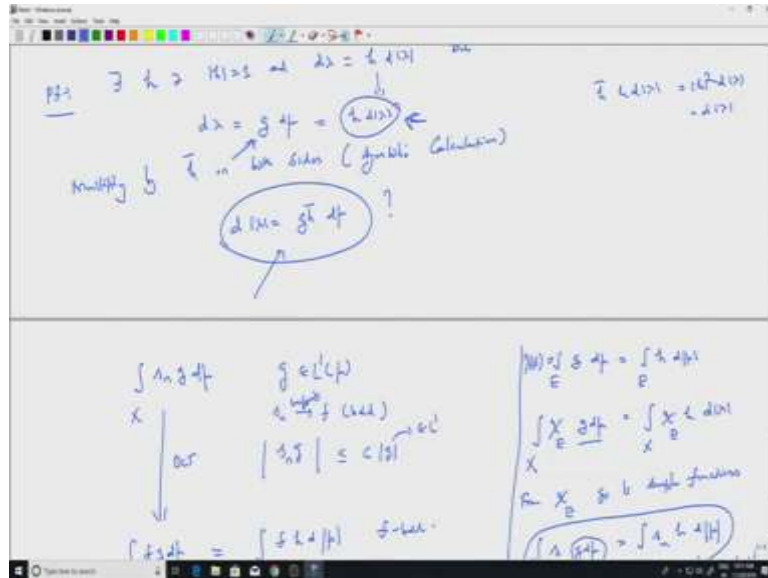 Pf: ∃ h ∋ |h|=1 and dλ = h d|λ|
h̄ h d|λ| = |h|² d|λ|
= d|λ|
dλ = g dμ = h d|λ|
Multiply by h̄ on both sides (Symbolic Calculation)
d|λ| = g h̄ dμ ?
∫_X s_n g dμ
g ∈ L¹(μ)
s_n → f (bdd)
DCT
|s_n g| ≤ c|g| → ∈ L¹
∫ f g dμ = ∫ f h d|μ| f-bdd.
λ(E) = ∫_E g dμ = ∫_E h d|μ|
∫_X χ_E g dμ = ∫_X χ_E h d|λ|
From χ_E go to simple functions
∫ s_n g dμ = ∫ s_n h d|μ|